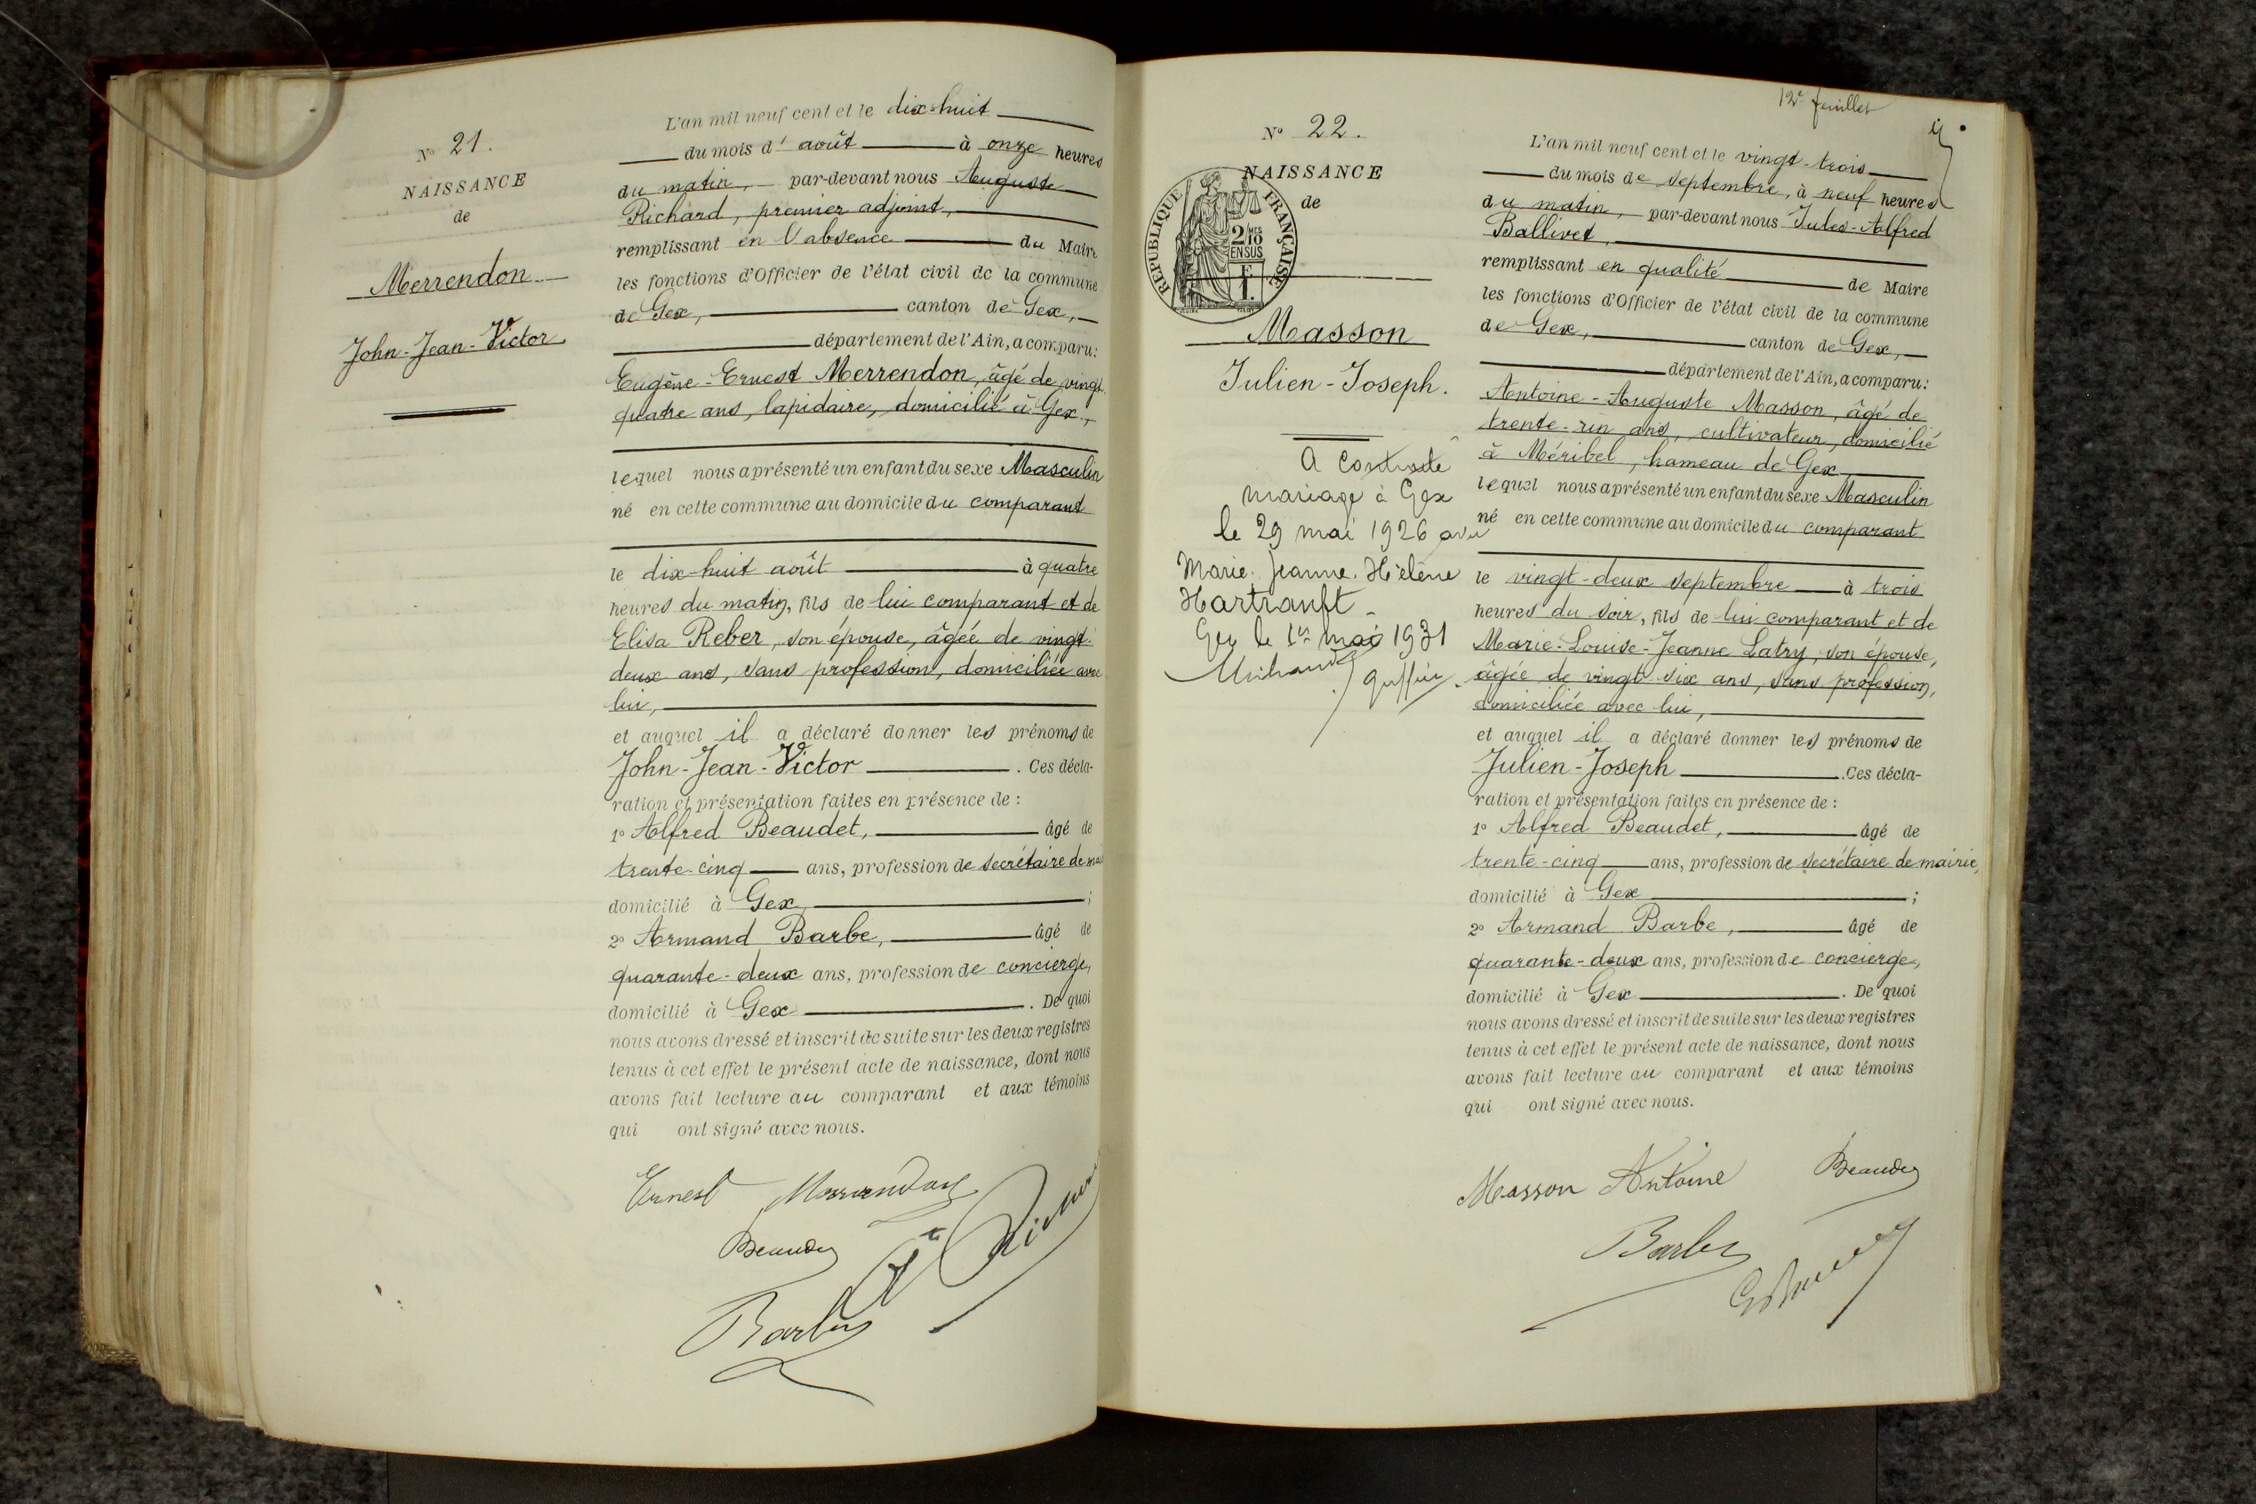 N° 21.
NAISSANCE
de
Merrendon
John-Jean-Victor
L'an mil neuf cent et le dix-huit
du mois d'août à onze heures
du matin, par-devant nous Auguste
Richard, premier adjoint,
remplissant en l'absence du Maire
les fonctions d'Officier de l'état civil de la commune
de Gex, canton de Gex,
département de l'Ain, a comparu:
Eugène-Ernest Merrendon, âgé de vingt-
quatre ans, lapidaire, domicilié à Gex,
lequel nous a présenté un enfant du sexe Masculin
né en cette commune au domicile du comparant
le dix-huit août à quatre
heures du matin, fils de lui comparant et de
Elisa Reber, son épouse, âgée de vingt-
deux ans, sans profession, domiciliée avec
lui,
et auquel il a déclaré donner les prénoms de
John-Jean-Victor. Ces décla-
ration et présentation faites en présence de :
1° Alfred Beaudet, âgé de
trente-cinq ans, profession de secrétaire de mai
domicilié à Gex ;
2° Armand Barbe, âgé de
quarante-deux ans, profession de concierge,
domicilié à Gex. De quoi
nous avons dressé et inscrit de suite sur les deux registres
tenus à cet effet le présent acte de naissance, dont nous
avons fait lecture au comparant et aux témoins
qui ont signé avec nous.
Ernest Merrendon
Beaudet
Barbe
12e feuillet
N° 22.
NAISSANCE
de
RÉPUBLIQUE FRANÇAISE
2/10 MES
EN SUS
F
1.
Masson
Julien-Joseph.
A contracté
mariage à Gex
le 29 mai 1926 avec
Marie-Jeanne-Hélène
Hartranft
Gex le 1er mai 1931
L'an mil neuf cent et le vingt-trois
du mois de septembre, à neuf heures
du matin, par-devant nous Jules-Alfred
Ballivet,
remplissant en qualité de Maire
les fonctions d'Officier de l'état civil de la commune
de Gex, canton de Gex,
département de l'Ain, a comparu:
Antoine-Auguste Masson, âgé de
trente-un ans, cultivateur, domicilié
à Méribel, hameau de Gex
lequel nous a présenté un enfant du sexe Masculin
né en cette commune au domicile du comparant
le vingt-deux septembre à trois
heures du soir, fils de lui comparant et de
Marie-Louise-Jeanne Latry, son épouse,
âgée de vingt-six ans, sans profession,
domiciliée avec lui,
et auquel il a déclaré donner les prénoms de
Julien-Joseph. Ces décla-
ration et présentation faites en présence de :
1° Alfred Beaudet, âgé de
trente-cinq ans, profession de secrétaire de mairie,
domicilié à Gex ;
2° Armand Barbe, âgé de
quarante-deux ans, profession de concierge,
domicilié à Gex. De quoi
nous avons dressé et inscrit de suite sur les deux registres
tenus à cet effet le présent acte de naissance, dont nous
avons fait lecture au comparant et aux témoins
qui ont signé avec nous.
Masson Antoine Beaudet
Barbe